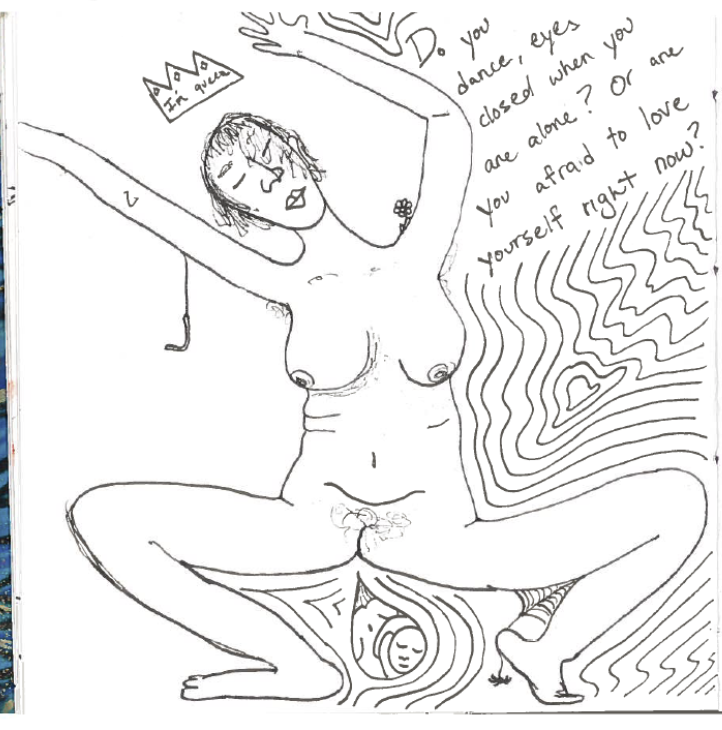 I'm queen
Do you
dance, eyes
closed when you
are alone? Or are
you afraid to love
yourself right now?